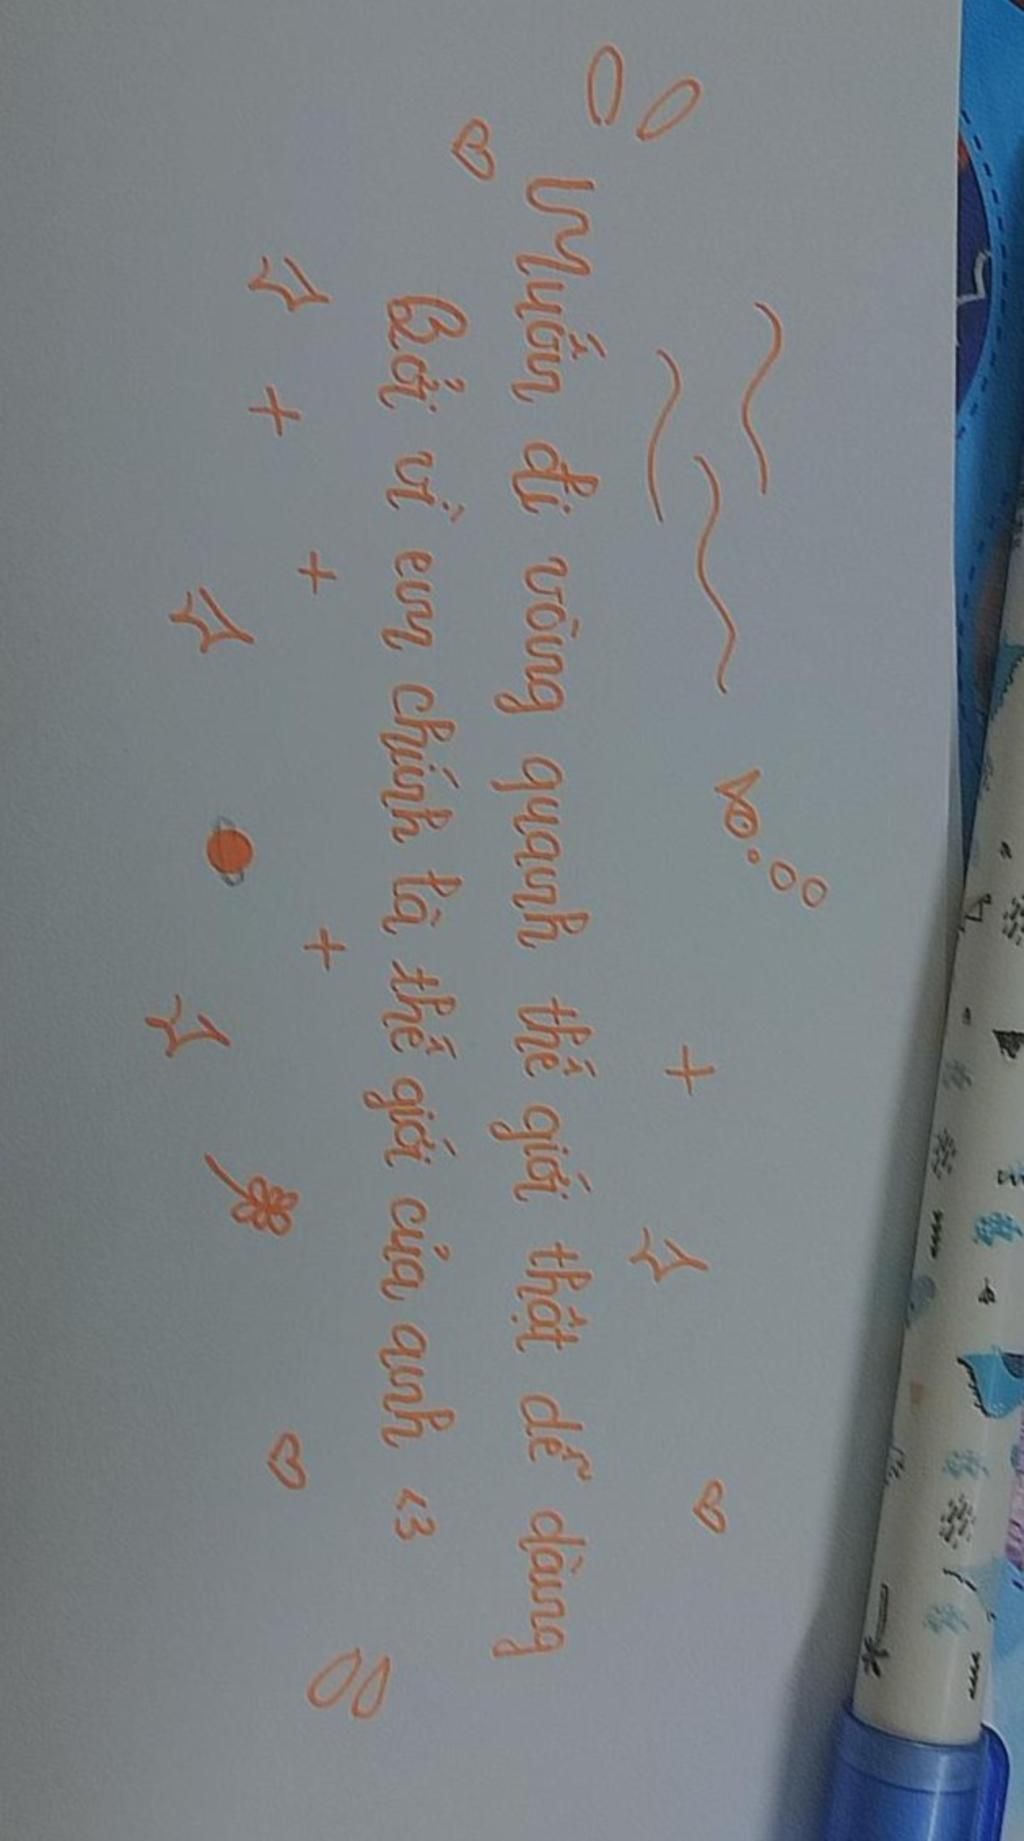 Muốn đi vòng quanh thế giới thật dễ dàng
Bởi vì em chính là thế giới của anh <3